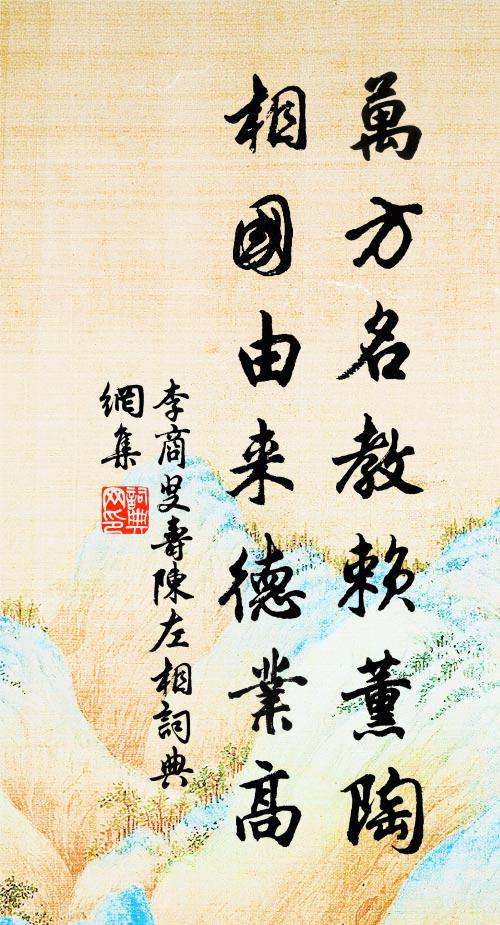 萬方名教賴薰陶
相國由来德業高
李商叟壽陳左相詞典
網集
詞典
网印